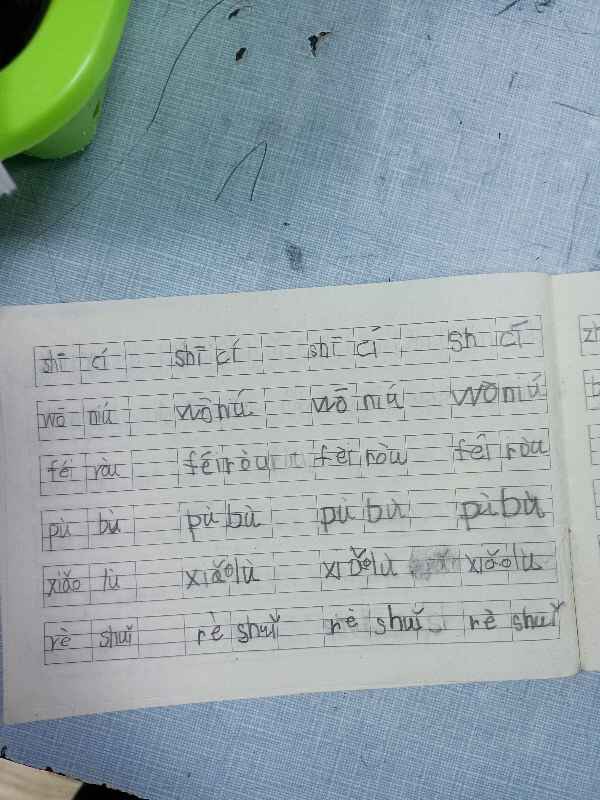 shī cí shī cí shī cí sh cī
wō niú wō niú wō niú wō niú
féi ròu féi ròu féi ròu féi ròu
pù bù pù bù pù bù pù bù
xiǎo lù xiǎo lù xiǎo lù xiǎo lù
rè shuǐ rè shuǐ rè shuǐ rè shuǐ